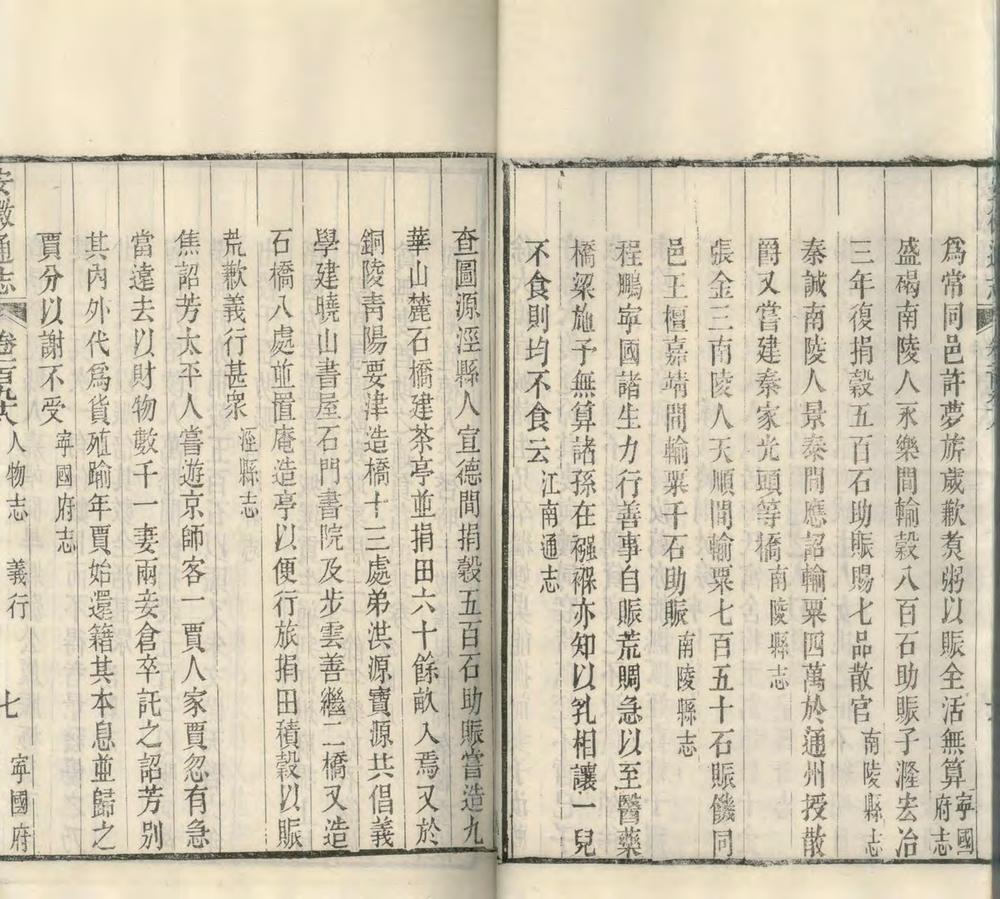 爲常同邑許夢旂歲歉煑粥以賑全活無算寧國府志
盛碣南陵人永樂間輸穀八百石助賑子瀣去冶
三年復捐穀五百石助賑賜七品散官南陵縣志
秦誠南陵人景泰間應詔輸粟四萬於通州授散
爵又嘗建秦家光頭等橋南陵縣志
張金三南陵人天順間輸粟七百五十石賑饑同
邑王檀嘉靖間輸粟千石助賑南陵縣志
程鵬寧國諸生力行善事自賑荒賙急以至醫藥
橋梁施予無算諸孫在襁褓亦知以乳相讓一兒
不食則均不食云江南通志
查圖源涇縣人宣德間捐穀五百石助賑嘗造九
華山麓石橋建茶亭並捐田六十餘畝入焉又於
銅陵靑陽要津造橋十三處弟洪源寶源共倡義
學建曉山書屋石門書院及步雲善繼二橋又造
石橋八處並置庵造亭以便行旅捐田積穀以賑
荒歉義行甚衆涇縣志
焦詔芳太平人嘗遊京師客一賈人家賈忽有急
當遠去以財物數千一妻兩妾倉卒託之詔芳別
其內外代爲貨殖踰年賈始還籍其本息並歸之
賈分以謝不受寧國府志
安徽通志 卷一百九十六 人物志 義行 七 寧國府